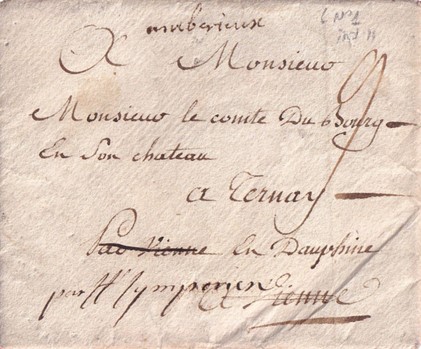 amberieux
N° 1
A Monsieur
Monsieur le comte Du bourg
En Son chateau
a Ternay
Par Vienne En Dauphiné
par St Symphorien
a Vienne